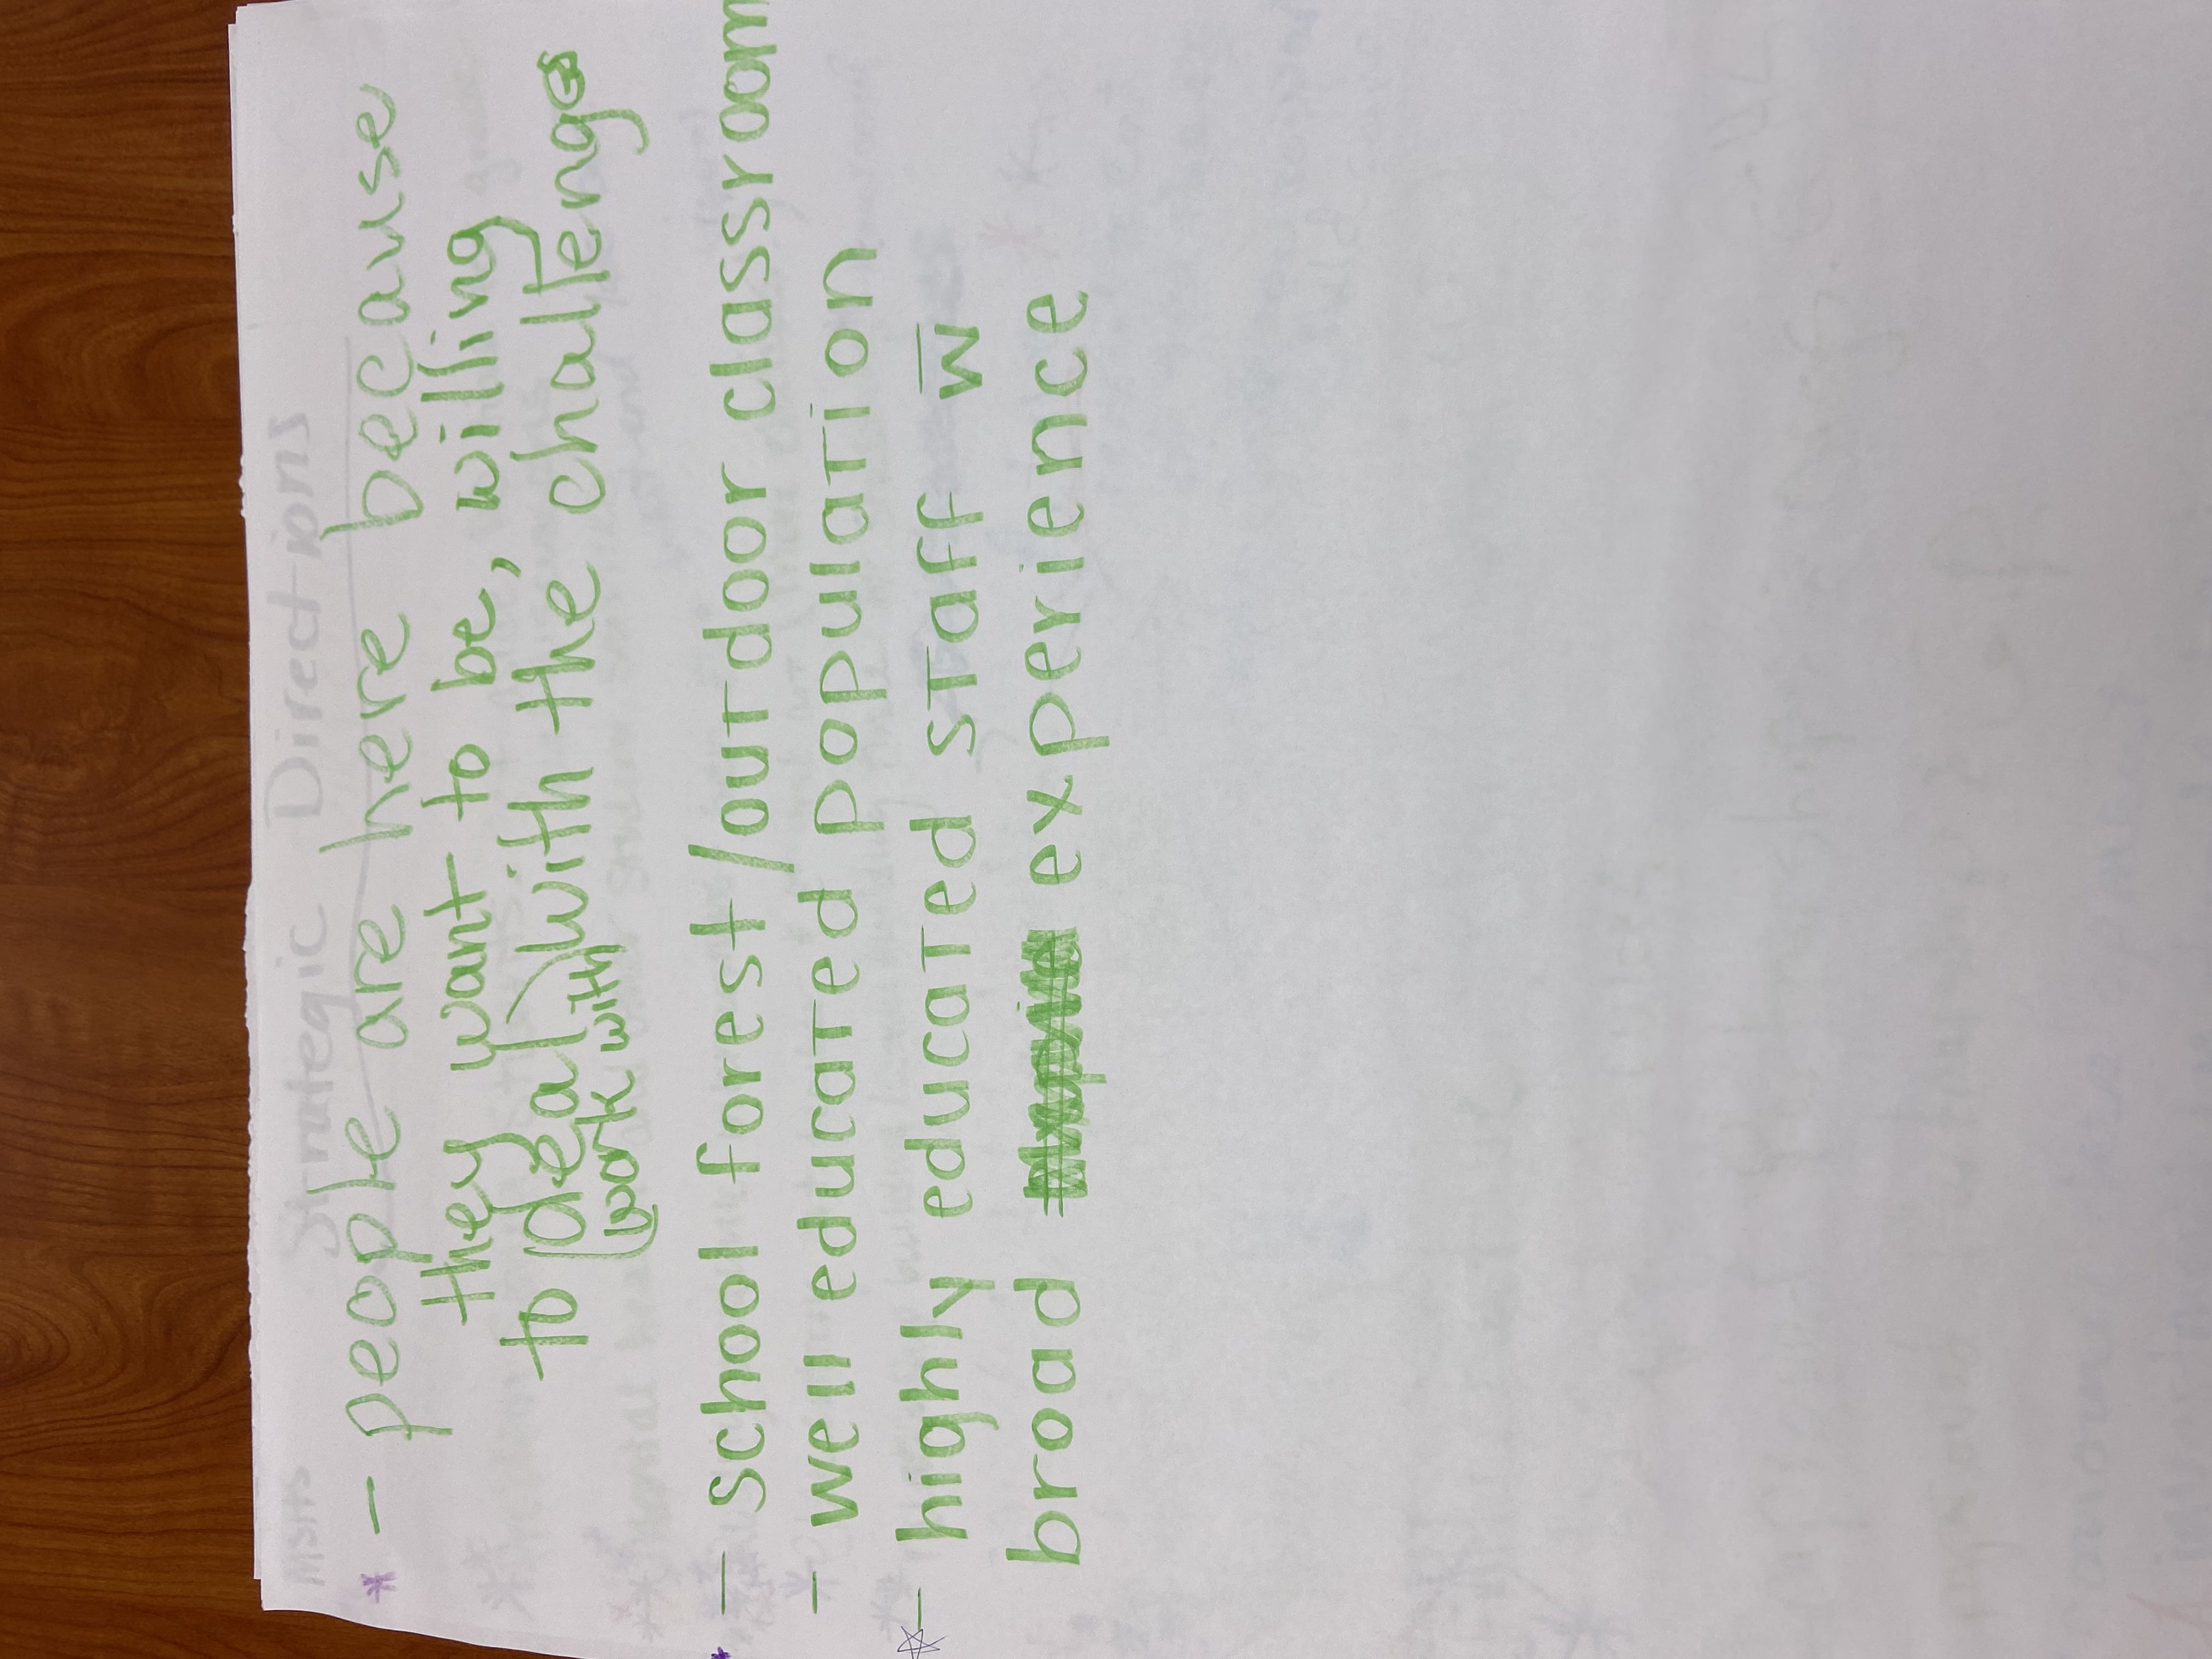 * - people are here because
they want to be, willing
to deal with the challenge
work with
* - School forest/outdoor classroom
- well educated population
☆ - highly educated staff w̅
broad experience
Strategic Directions